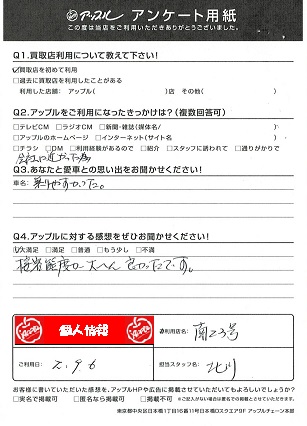 アップル アンケート用紙
この度は当店をご利用いただきありがとうございました。
Q1.買取店利用について教えて下さい!
☑買取店を初めて利用
□過去に買取店を利用したことがある
利用した店舗: アップル( )店 その他( )
Q2.アップルをご利用になったきっかけは?(複数回答可)
□テレビCM □ラジオCM □新聞・雑誌(媒体名/ )
□アップルのホームページ □インターネット(サイト名 )
□チラシ □DM □利用経験があるので □紹介 □スタッフに誘われて □通りがかりで
会社に近かった為
Q3.あなたと愛車との思い出をお聞かせください!
車名: 乗りやすかった。
Q4.アップルに対する感想をぜひお聞かせください!
☑大満足 □満足 □普通 □もう少し □不満
接客態度が大へん良かったです。
個人情報
ご利用店名: 南23号
ご利用日: 2.9.6
担当スタッフ名: 北川
お客様に書いていただいた感想を、アップルHPや広告に掲載させていただいてもよろしいでしょうか?
□実名で掲載可 □匿名なら掲載可 □掲載不可
東京都中央区日本橋1丁目16番11号日本橋Dスクエア9F アップルチェーン本部